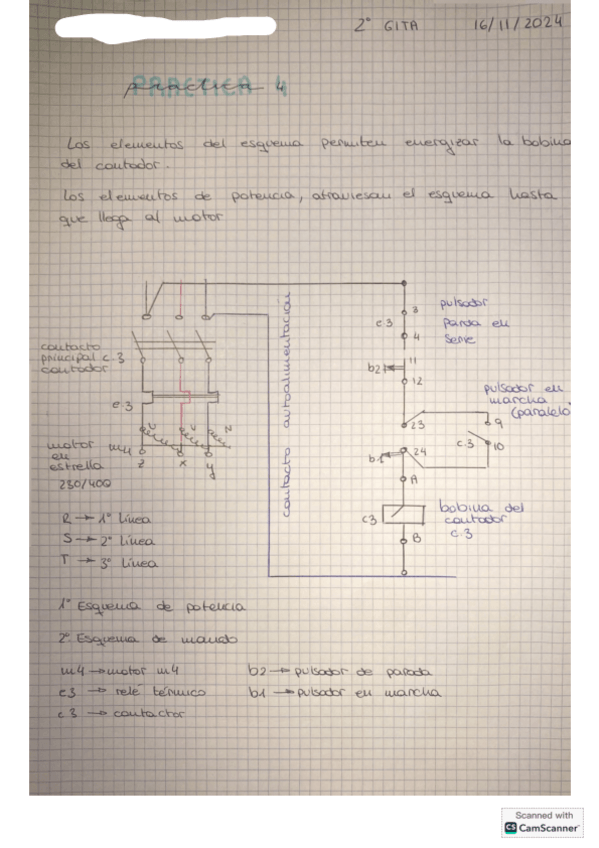 2º GITA 16/11/2024
PRACTICA 4
Los elementos del esquema permiten energizar la bobina
del contador.
Los elementos de potencia, atraviesan el esquema hasta
que llega al motor
contacto
principal c.3
contador
e.3
motor m4
en
estrella
230/400
U V W
Z X Y
contacto autoalimentación
c3
3
4
pulsador
parada en
serie
b2
11
12
pulsador en
marcha
(paralelo
23
9
c.3
10
b1
24
A
c3
B
bobina del
contador
c.3
R → 1º Línea
S → 2º Línea
T → 3º Línea
1º Esquema de potencia
2º Esquema de mando
m4 → motor m4 b2 → pulsador de parada
e3 → relé térmico b1 → pulsador en marcha
c3 → contactor
Scanned with
CS CamScanner